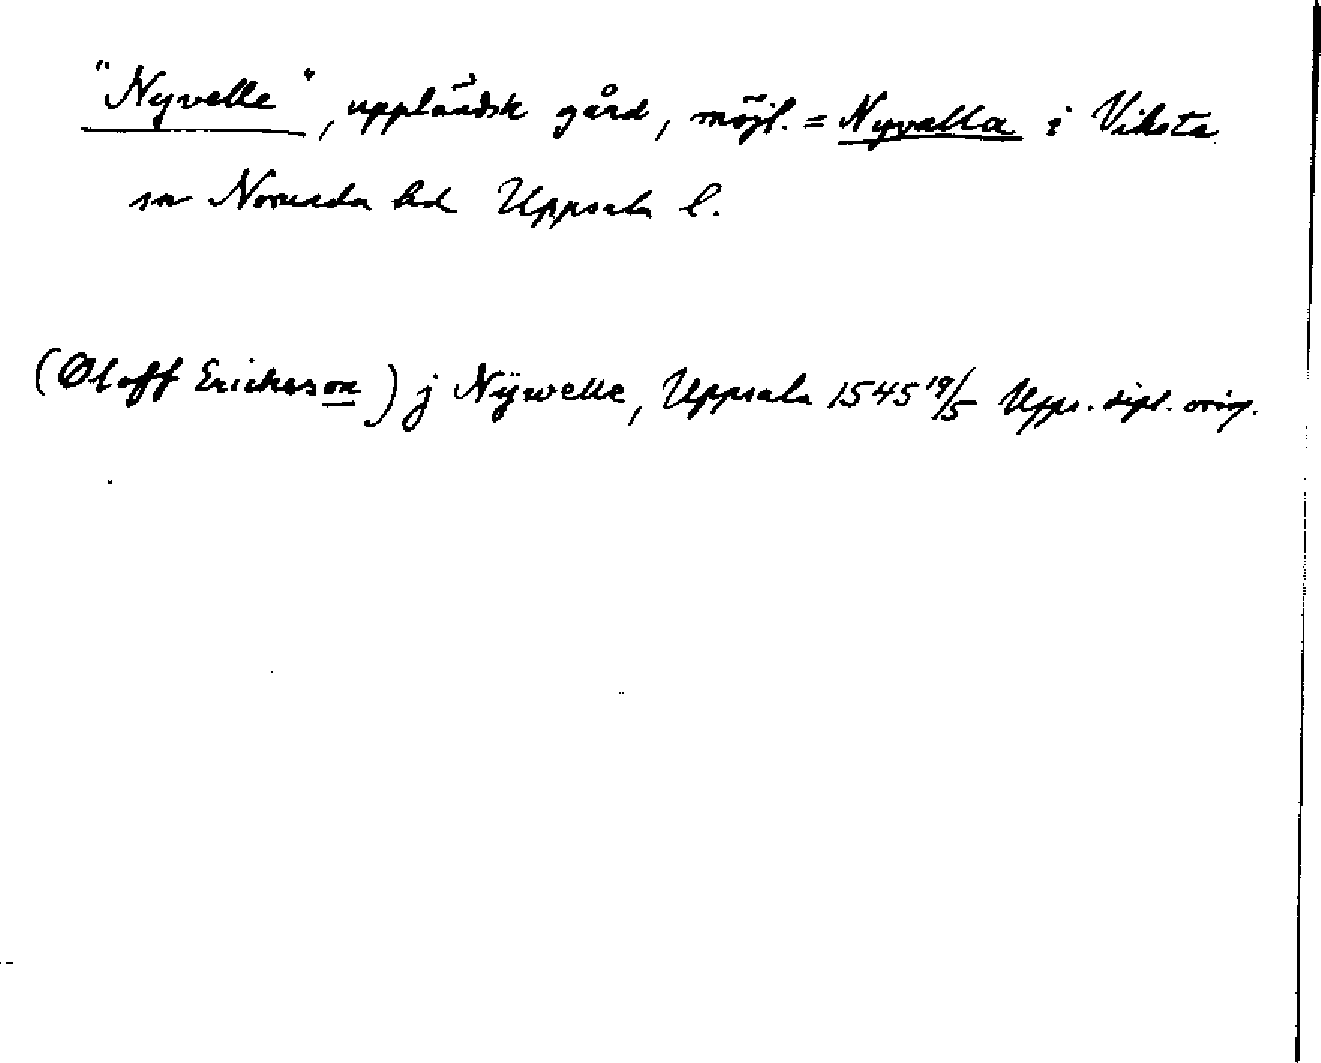 "Nyvelle", uppländsk gård, möjl. = Nyvalla i Viksta
sn Norunda hd Uppsala l.
(Oloff Erichsson) j Nÿwelle, Uppsala 1545 19/5 Upps. dipl. orig.